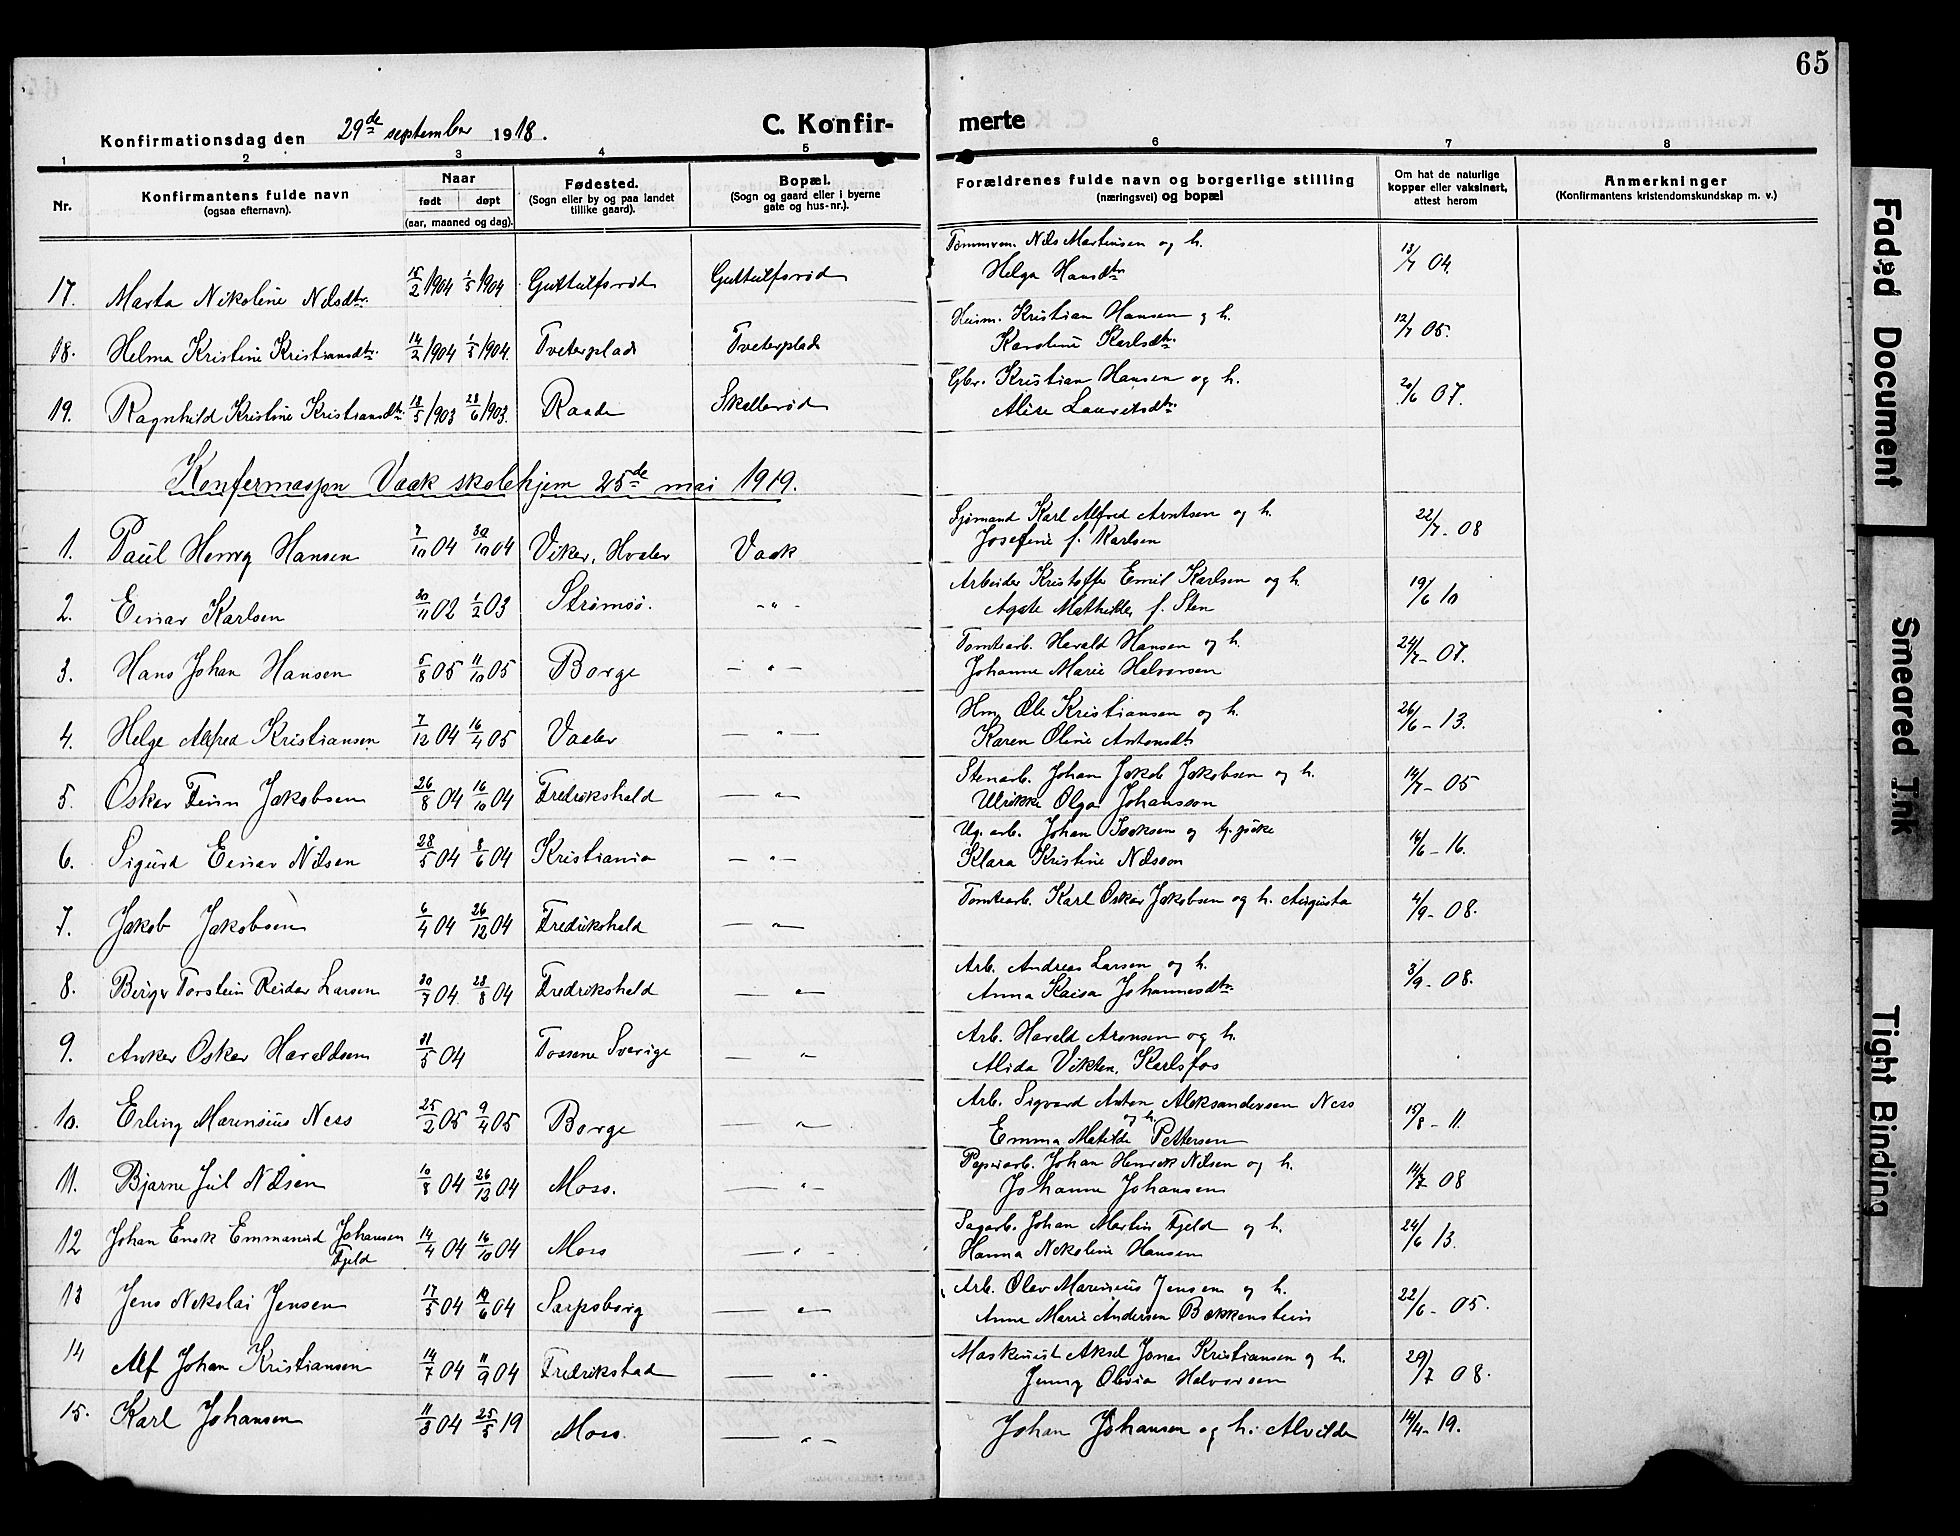 65
Konfirmationsdag den 29de september 1918.
C. Konfirmerte
1 2 3 4 5 6 7 8
Nr.
Konfirmantens fulde navn
(ogsaa efternavn).
Naar
født døpt
(aar, maaned og dag).
Fødested.
(Sogn eller by og paa landet
tillike gaard).
Bopæl.
(Sogn og gaard eller i byerne
gate og hus-nr.).
Forældrenes fulde navn og borgerlige stilling
(næringsvei) og bopæl
Om hat de naturlige
kopper eller vaksinert,
attest herom
Anmerkninger
(Konfirmantens kristendomskundskap m. v.)
17. Marta Nikoline Nilsdtr. 15/2 1904 1/5 1904 Guttulfsrød Guttulfsrød
Tømmerm. Nils Martinsen og h.
Helga Hansdtr. 13/7 04.
18. Helma Kristine Kristiansdtr. 14/2 1904 1/5 1904. Tveterplads Tveterplads
Husm. Kristian Hansen og h.
Karoline Karlsdtr. 12/7 05.
19. Ragnhild Kristine Kristiansdtr. 18/5 1903 28/6 1903. Raade Skallerød
Gbr. Kristian Hansen og h.
Alise Lauritsdtr. 20/6 07.
Konfermasjon Vaak skolehjem 25de mai 1919.
1. Paul Henry Hansen 7/10 04 30/10 04 Viker, Hvaler Vaak
Sjømand Karl Alfred Arntsen og h.
Josefine f. Karlsen 22/7- 08
2. Einar Karlsen 30/11 02 1/2 03 Strømsø. - " -
Arbeider Kristoffer Emil Karlsen og h.
Agate Mathilde f. Sten 19/6 10
3. Hans Johan Hansen 5/8 05 11/10 05 Borge - " -
Tomtearb. Harald Hansen og h.
Johanne Marie Halvorsen 24/7- 07.
4. Helge Alfred Kristiansen 7/12 04 16/4 05 Vaaler - " -
Hm. Ole Kristiansen og h.
Karen Oline Antonsdtr 26/6- 13.
5. Oskar Finn Jakobsen 26/8 04 16/10 04 Fredrikshald - " -
Stenarb. Johan Jakob Jakobsen og h.
Ulrikke Olga Johansson 14/7- 05
6. Sigurd Einar Nilsen 28/5 04 8/6 04 Kristiania - " -
Ug. arb. Johan Isaksen og pike
Klara Kristine Nilsson 16/6- 16.
7. Jakob Jakobsen 6/4 04 26/12 04 Fredrikshald - " -
Tomtearb. Karl Oskar Jakobsen og h. Augusta 4/9- 08.
8. Birger Torstein Reidar Larsen 30/7 04. 28/8 04 Fredrikshald - " -
Arb. Andreas Larsen og h.
Anna Kaisa Johannesdtr. 3/9- 08.
9. Anker Oskar Haraldsen 31/5 04 Tossene Sverige - " -
Arb. Harald Aronsen og h.
Alida Vikten, Karlsfos
10. Erling Marensius Ness 25/2 05 9/4 05 Borge - " -
Arb. Sigvard Anton Aleksandersen Ness
og h.
Emma Matilde Pettersen 15/8 - 11.
11. Bjarne Jul Nilsen 10/8 04 26/12 04 Moss. - " -
Papirarb. Johan Henrik Nilsen og h.
Johanne Johansen 14/7 08
12 Johan Enok Emmanuel Johansen
Fjeld 14/4 04 16/10 04 Moss - " -
Sagarb. Johan Martin Fjeld og h.
Hanna Nekoline Hansen 24/6 13.
13 Jens Nekolai Jensen 17/5 04 19/6 04 Sarpsborg - " -
Arb. Olav Marinius Jensen og h.
Anne Marie Andersen Bakkenstein 22/6- 05.
14 Alf Johan Kristiansen 14/7 04 11/9 04 Fredrikstad - " -
Maskinist Aksel Jonas Kristiansen og h.
Jenny Olivia Halvorsen 29/7 08.
15. Karl Johansen 11/3 04 25/5 19 Moss. - " -
Johan Johansen og h. Alvilde 14/4- 19.
Faded Document
Smeared Ink
Tight Binding